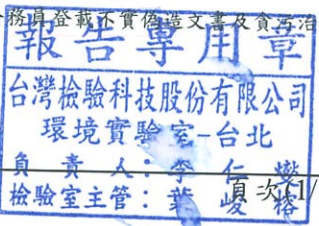 務員登載不實偽造文書及貪污治
報告專用章
台灣檢驗科技股份有限公司
環境實驗室-台北
負責人:李仁燮
檢驗室主管:葉峻榕
頁次(1/